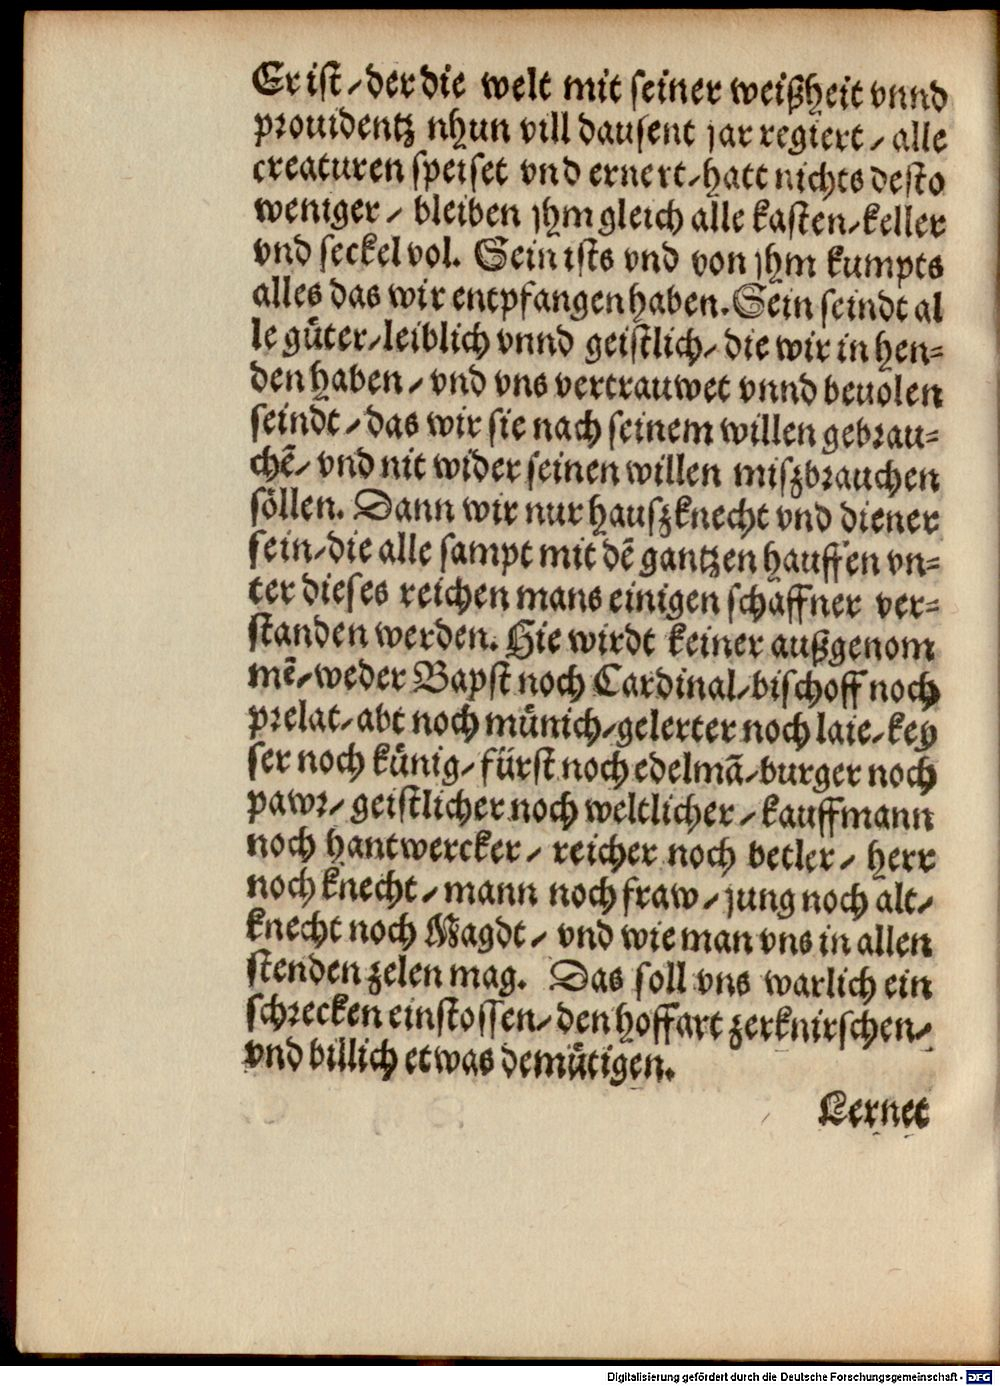 Er ist / der die welt mit seiner weißheit vnnd
prouidentz nhun vill dausent jar regiert / alle
creaturen speiset vnd ernert / hatt nichts desto
weniger / bleiben jhm gleich alle kasten / keller
vnd seckel vol. Sein ists vnd von jhm kumpts
alles das wir entpfangen haben. Sein seindt al
le gůter / leiblich vnnd geistlich / die wir in hen=
den haben / vnd vns vertrauwet vnnd beuolen
seindt / das wir sie nach seinem willen gebrau=
chẽ / vnd nit wider seinen willen miszbrauchen
söllen. Dann wir nur hauszknecht vnd diener
sein / die alle sampt mit dẽ gantzen hauffen vn=
ter dieses reichen mans einigen schaffner ver=
standen werden. Hie wirdt keiner außgenom
mẽ / weder Bapst noch Cardinal / bischoff noch
prelat / abt noch münich / gelerter noch laie / key
ser noch künig / fürst noch edelmã / burger noch
pawr / geistlicher noch weltlicher / kauffmann
noch hantwercker / reicher noch betler / herr
noch knecht / mann noch fraw / jung noch alt /
knecht noch Magdt / vnd wie man vns in allen
stenden zelen mag. Das soll vns warlich ein
schrecken einstossen / den hoffart zerknirschen /
vnd billich etwas demütigen.
Lernet
Digitalisierung gefördert durch die Deutsche Forschungsgemeinschaft - DFG